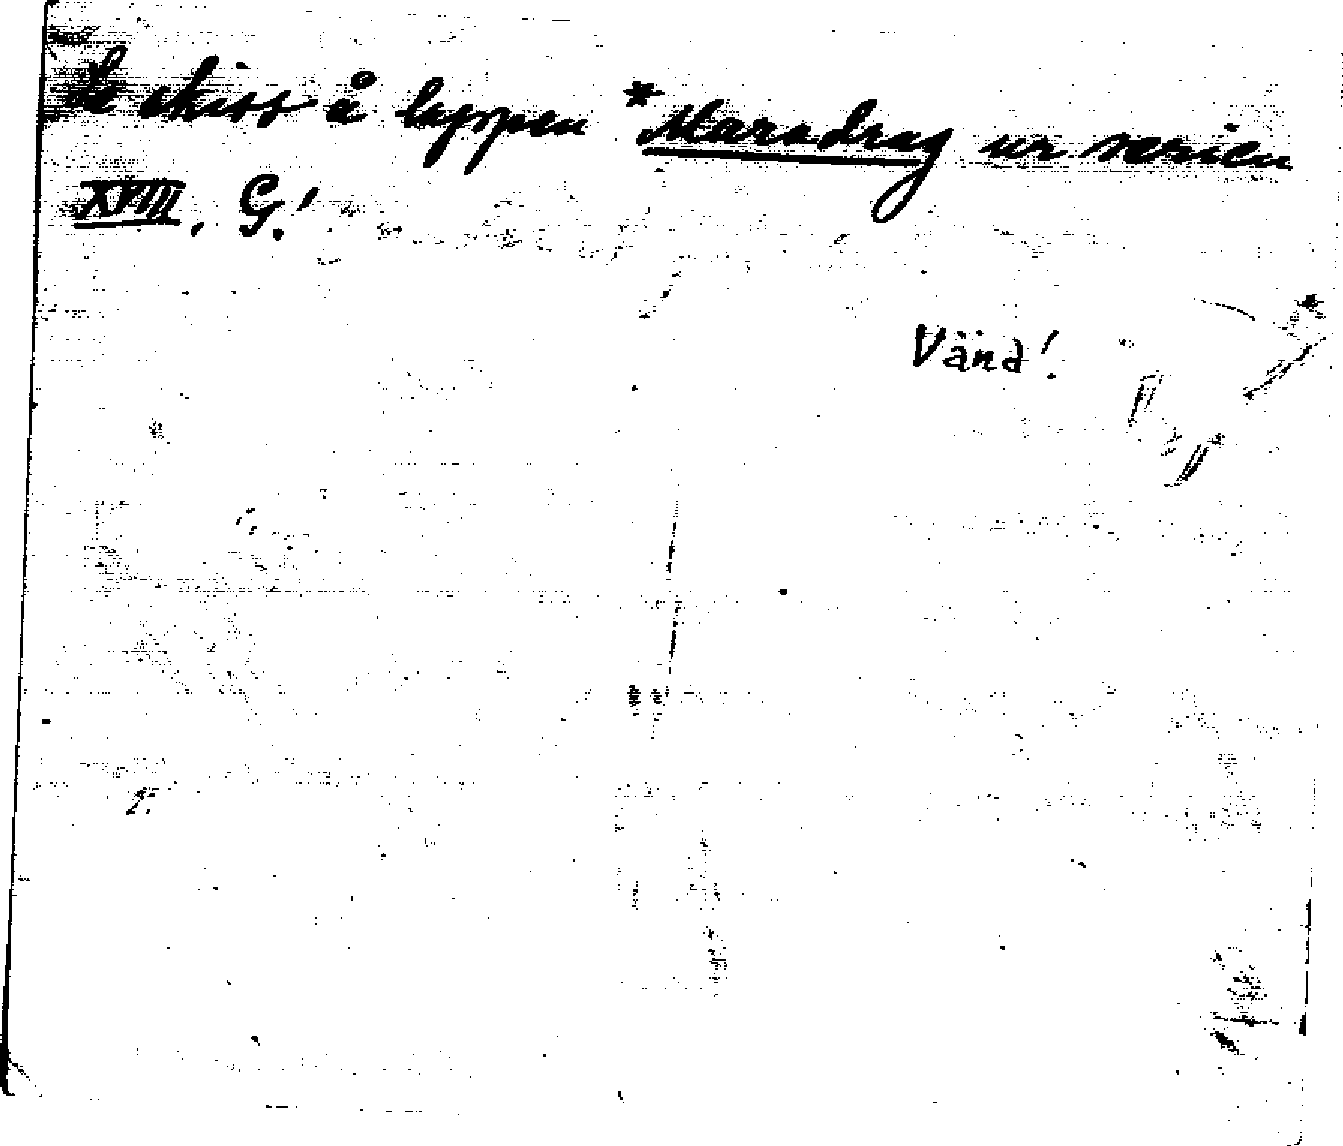 Se skiss å lappen *Marsdrag ur serien
XVIII. G!
Vänd!